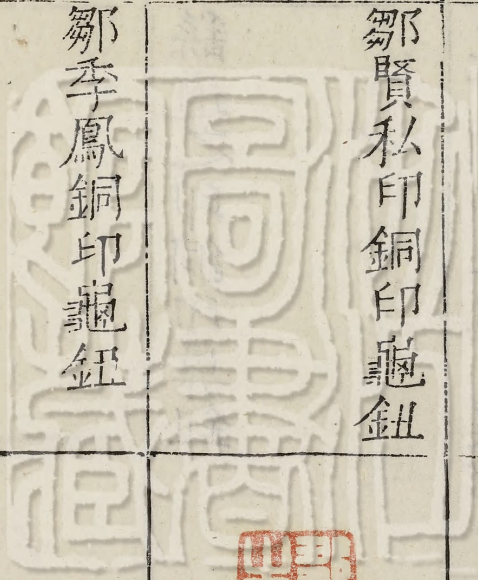 鄒賢私印銅印龜鈕
鄒季鳳銅印龜鈕